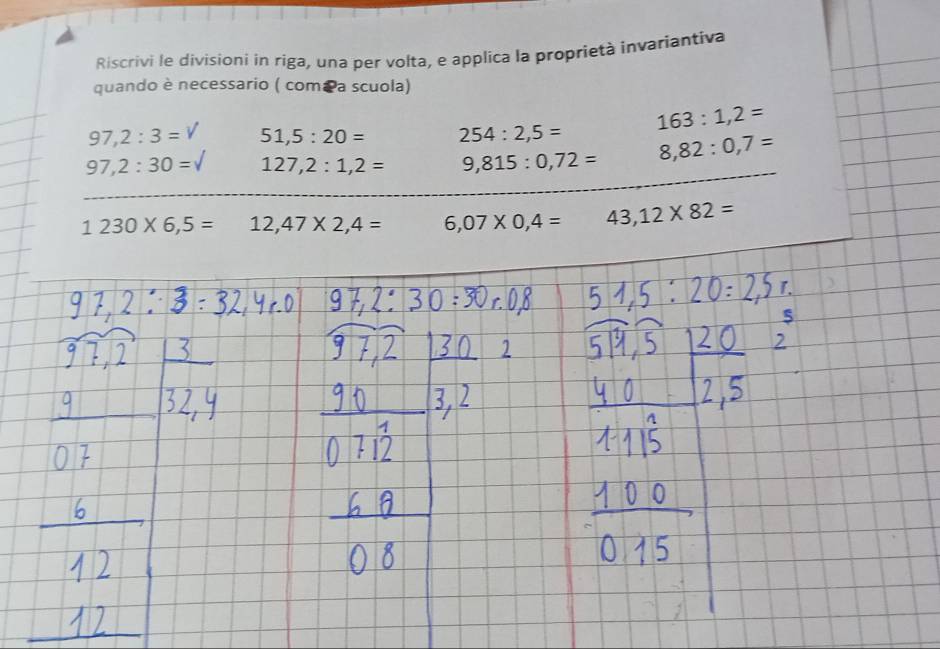 Riscrivi le divisioni in riga, una per volta, e applica la proprietà invariantiva
quando è necessario ( come a scuola)
97,2 : 3 = √ 51,5 : 20 = 254 : 2,5 = 163 : 1,2 =
97,2 : 30 = √ 127,2 : 1,2 = 9,815 : 0,72 = 8,82 : 0,7 =
1 230 X 6,5 = 12,47 X 2,4 = 6,07 X 0,4 = 43,12 X 82 =
97,2 : 3 = 32,4 r.0 97,2 : 30 = 30 r. 0,8 51,5 : 20 = 2,5 r.
97,2 3 97,2 30 2 51,5 20 2 5
9 32,4 90 3,2 40 2,5
07 0712 1115
6 60 100
12 08 015
12